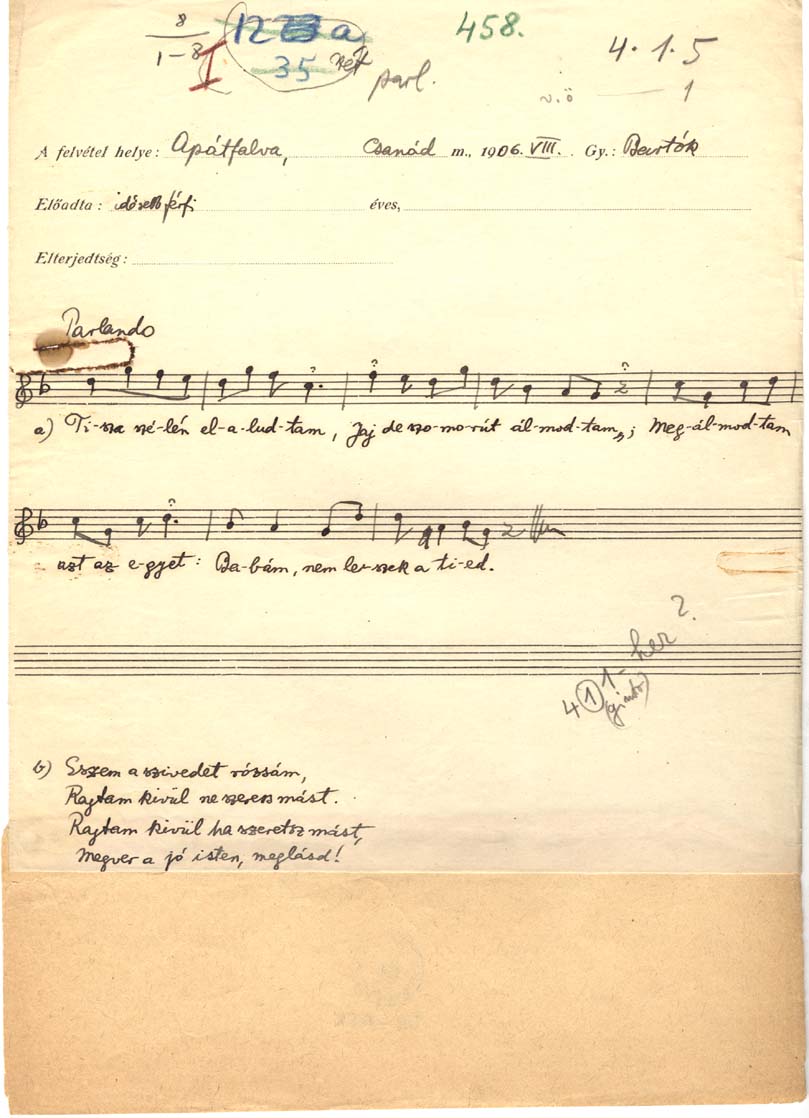 8 12 a 458.
1-8 I 35 4. 1. 5
parl.
v.ö — 1
A felvétel helye: Apátfalva, Csanád m., 1906. VIII. Gy.: Bartók
Előadta: idősebb férfi éves,
Elterjedtség:
Parlando
a) Ti-sza szé-lén el-a-lud-tam, Jaj de szo-mo-rút ál-mod-tam; Meg-ál-mod-tam
azt az e-gyet: Ba-bám, nem le-szek a ti-ed.
1- her?
4 1
b) Eszem a szivedet rózsám,
Rajtam kivül ne szeress mást.
Rajtam kivül ha szeretsz mást,
Megver a jó isten, meglásd!